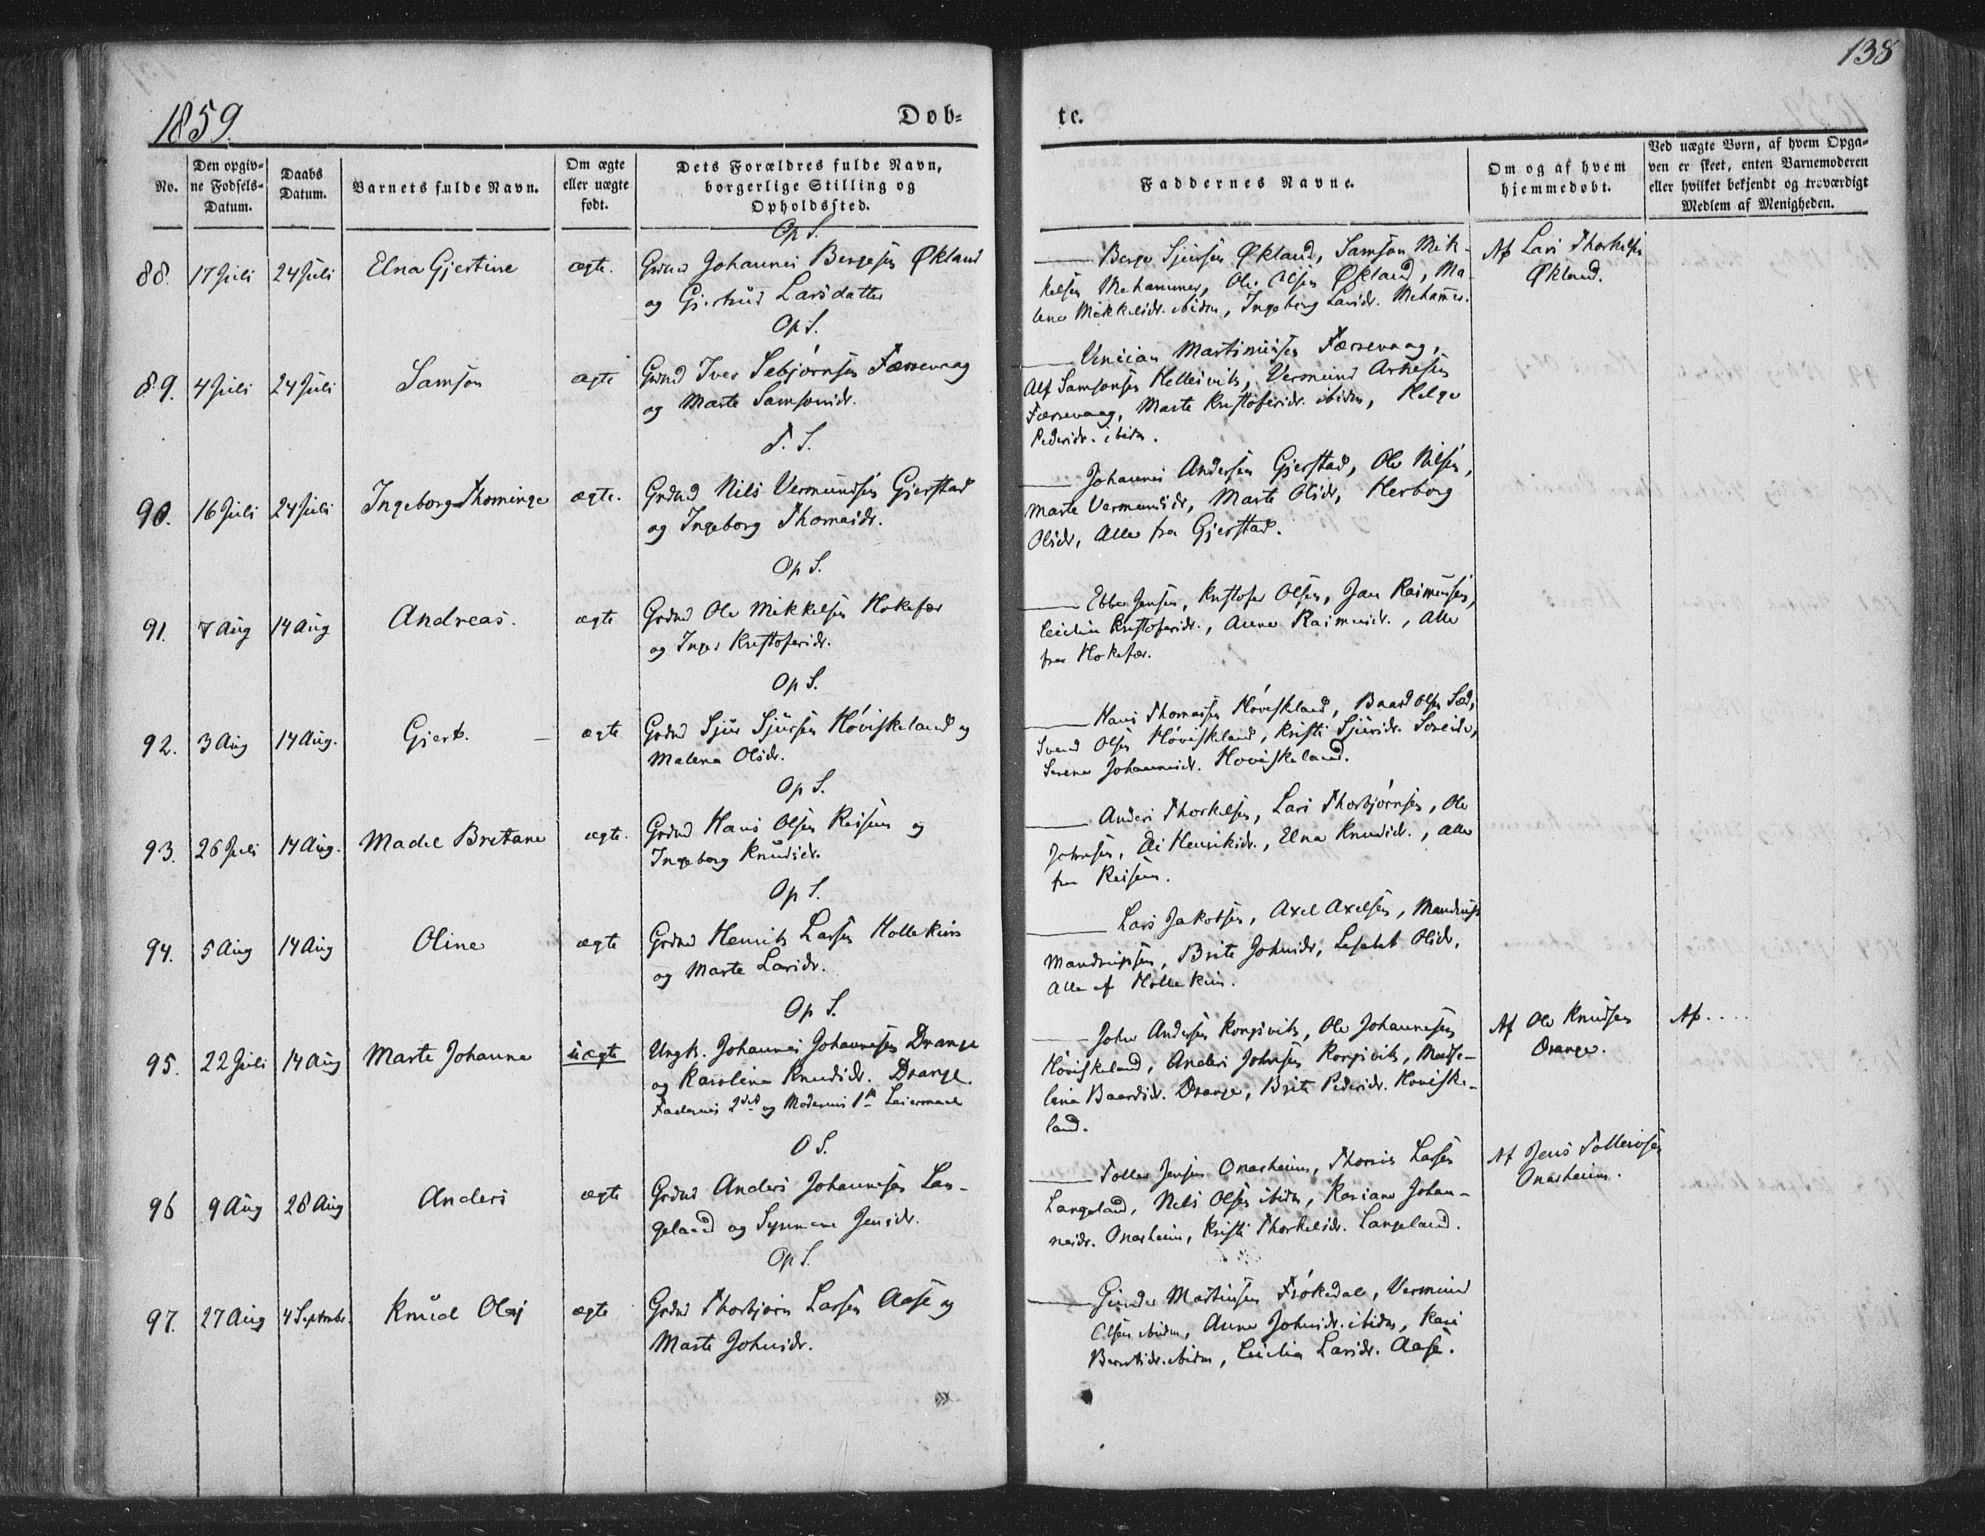 138
1859.
Døb-
te.
No.
Den opgiv-
ne Fødsels-
Datum.
Daabs
Datum.
Barnets fulde Navn.
Om ægte
eller uægte
født.
Dets Forældres fulde Navn,
borgerlige Stilling og
Opholdssted.
Faddernes Navne.
Om og af hvem
hjemmedøbt.
Ved uægte Børn, af hvem Opga-
ven er skeet, enten Barnemoderen
eller hvilket bekjendt og troværdigt
Medlem af Menigheden.
Op S.
88. 17 Juli 24 Juli Elna Gjertine ægte. Grdmd Johannes Bergesen Økland
og Gjertrud Larsdatter
Berge Sjursen Økland, Samson Mik-
kelsen Mehammer, Ole Olsen Økland, Ma-
lena Mikkelsdr. ibidm, Ingeborg Larsdr. Mehamer.
Af Lars Thorkelsen
Økland.
Op S.
89. 4 Juli 24 Juli Samson ægte Grdmd Iver Sebjørnsen Færevaag
og Marte Samsonsdr.
Martinusen Færevaag,
Alf Samsonsen Hellesvik, Vermund Arnesen
Færevaag, Marte Kristofersdr. ibidm, Helge
Pedersdr. ibidm.
T. S.
90. 16 Juli 24 Juli Ingeborg Thominge ægte. Grdmd Nils Vermundsen Gjerstad
og Ingeborg Thomasdr.
Johannes Andersen Gjerstad, Ole Nilsen,
Marte Vermundsdr, Marte Olsdr, Herborg
Olsdr, Alle fra Gjerstad.
Op S.
91. 7 Aug 14 Aug Andreas. ægte Grdmd Ole Mikkelsen Hokefær
og Inger Kristofersdr.
Ebbe Jensen, Kristofer Olsen, Jan Rasmussen,
Cecilia Kristofersdr., Anne Rasmusdr., Alle
fra Hokefær.
Op S.
92. 3 Aug 14 Aug. Gjert. ægte Grdmd Sjur Sjursen Høviskeland og
Malena Olsdr.
Hans Thomassen Høviskeland, Baard Olsen Sæd,
Svend Olsen Høviskeland, Kristi Sjursdr. Soreide,
Serena Johannesdr. Hoviskeland.
Op S.
93. 26 Juli 14 Aug. Madel Bretane ægte. Grdmd Hans Olsen Reisem og
Ingeborg Knudsdr.
Anders Thorkelsen, Lars Thorbjørnsen, Ole
Johnsen, Henriksdr., Elna Knudsdr., alle
fra Reisem.
Op S.
94. 5 Aug 14 Aug Oline ægte Grdmd Henrik Larsen Hollekim
og Marte Larsdr.
Lars Jakobsen, Axel Axelsen, Mandrup
Mandrupsen, Brite Johnsdr, Lisabet Olsdr,
Alle af Hollekim.
Op S.
95. 22 Juli 14 Aug Marte Johanna uægte Ungk. Johannes Johannesen Drange
og Karolina Knudsdr. Drange.
Faderens 2det og Moderens 1ste Leiermaal
John Andersen Rongevik, Ole Johannesen
Høviskeland, Anders Johnsen Rongevik, Madse-
lena Baardsdr. Drange, Brite Pedersdr. Hoviske-
land.
Af Ole Knudsen
Drange.
Af....
O S.
96 9 Aug 28 Aug Anders ægte Grdmd Anders Johannesen Lan-
geland og Synneva Jensdr.
Tolles Jensen Onarheim, Thomas Larsen
Langeland, Nils Olsen ibidm, Kariane Johan-
nesdr. Onarheim, Kristi Thorkelsdr. Langeland.
Af Jens Tollevsen
Onarheim.
Op S.
97. 27 Aug 4 Septembr. Knud Olaj ægte Grdmd Thorbjørn Larsen Aase og
Marte Johnsdr.
Gunder Martinsen Frøkedal, Vermund
Olsen ibidm, Anna Johnsdr. ibidm, Kari
Berntsdr. ibidm, Cecilia Larsdr. Aase.